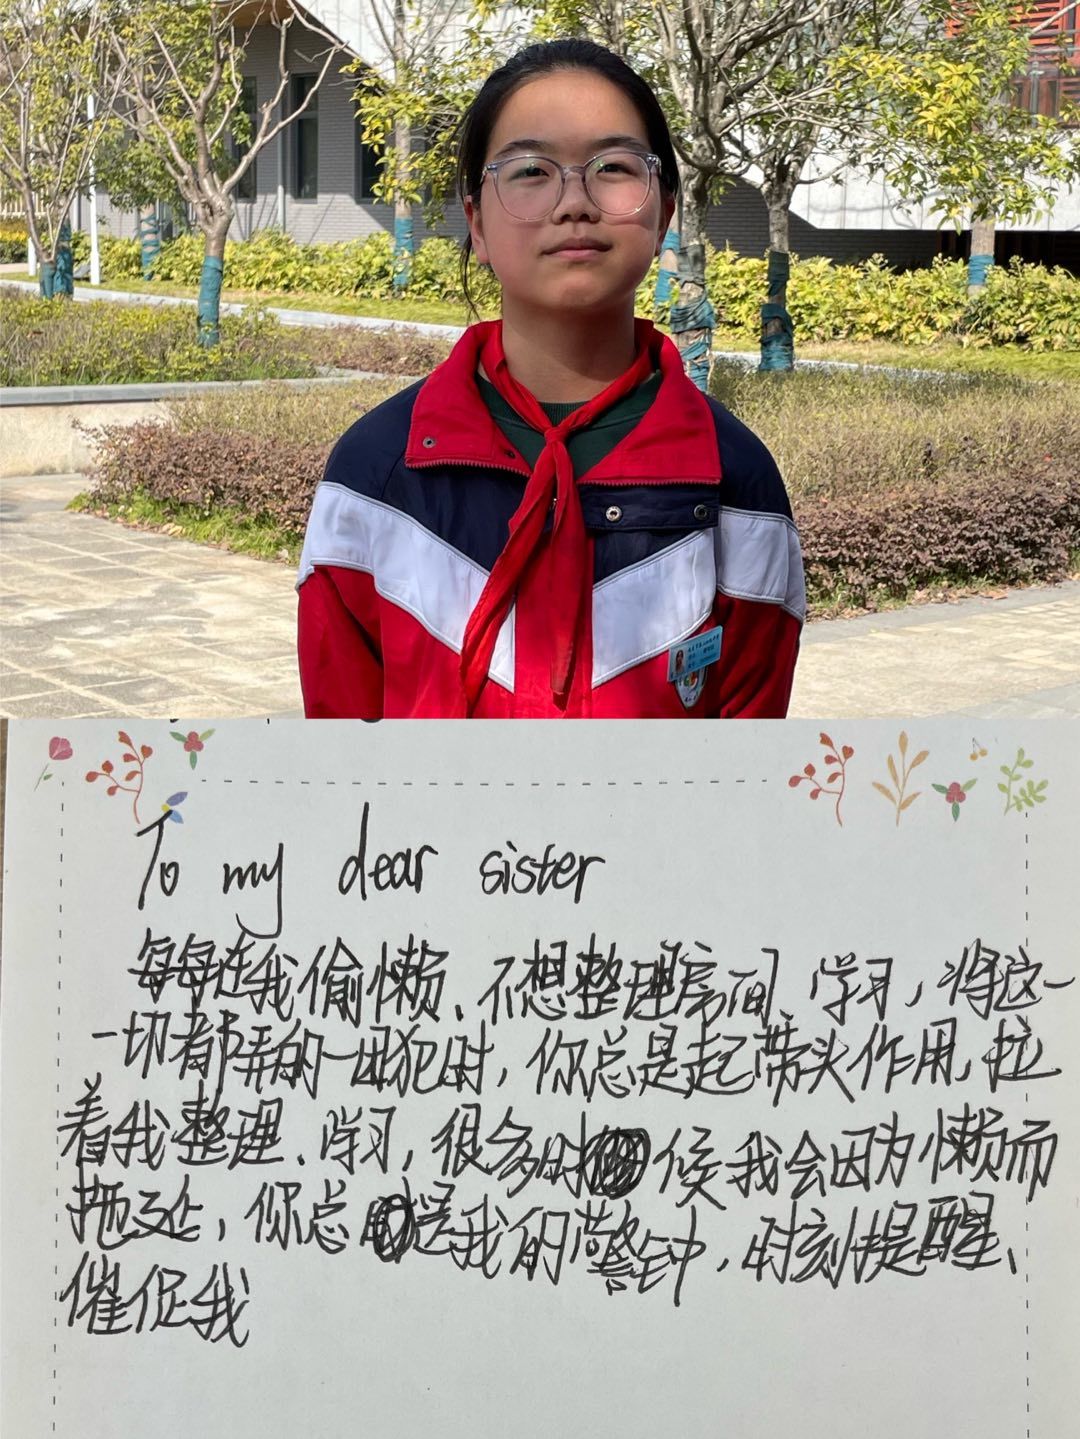 To my dear sister
每每连我偷懒、不想整理房间、学习，将这一
一切都弄的一团犯时，你总是起带头作用，拉
着我整理、学习，很多时候我会因为懒而
拖延，你总是我的警钟，时刻提醒、
催促我